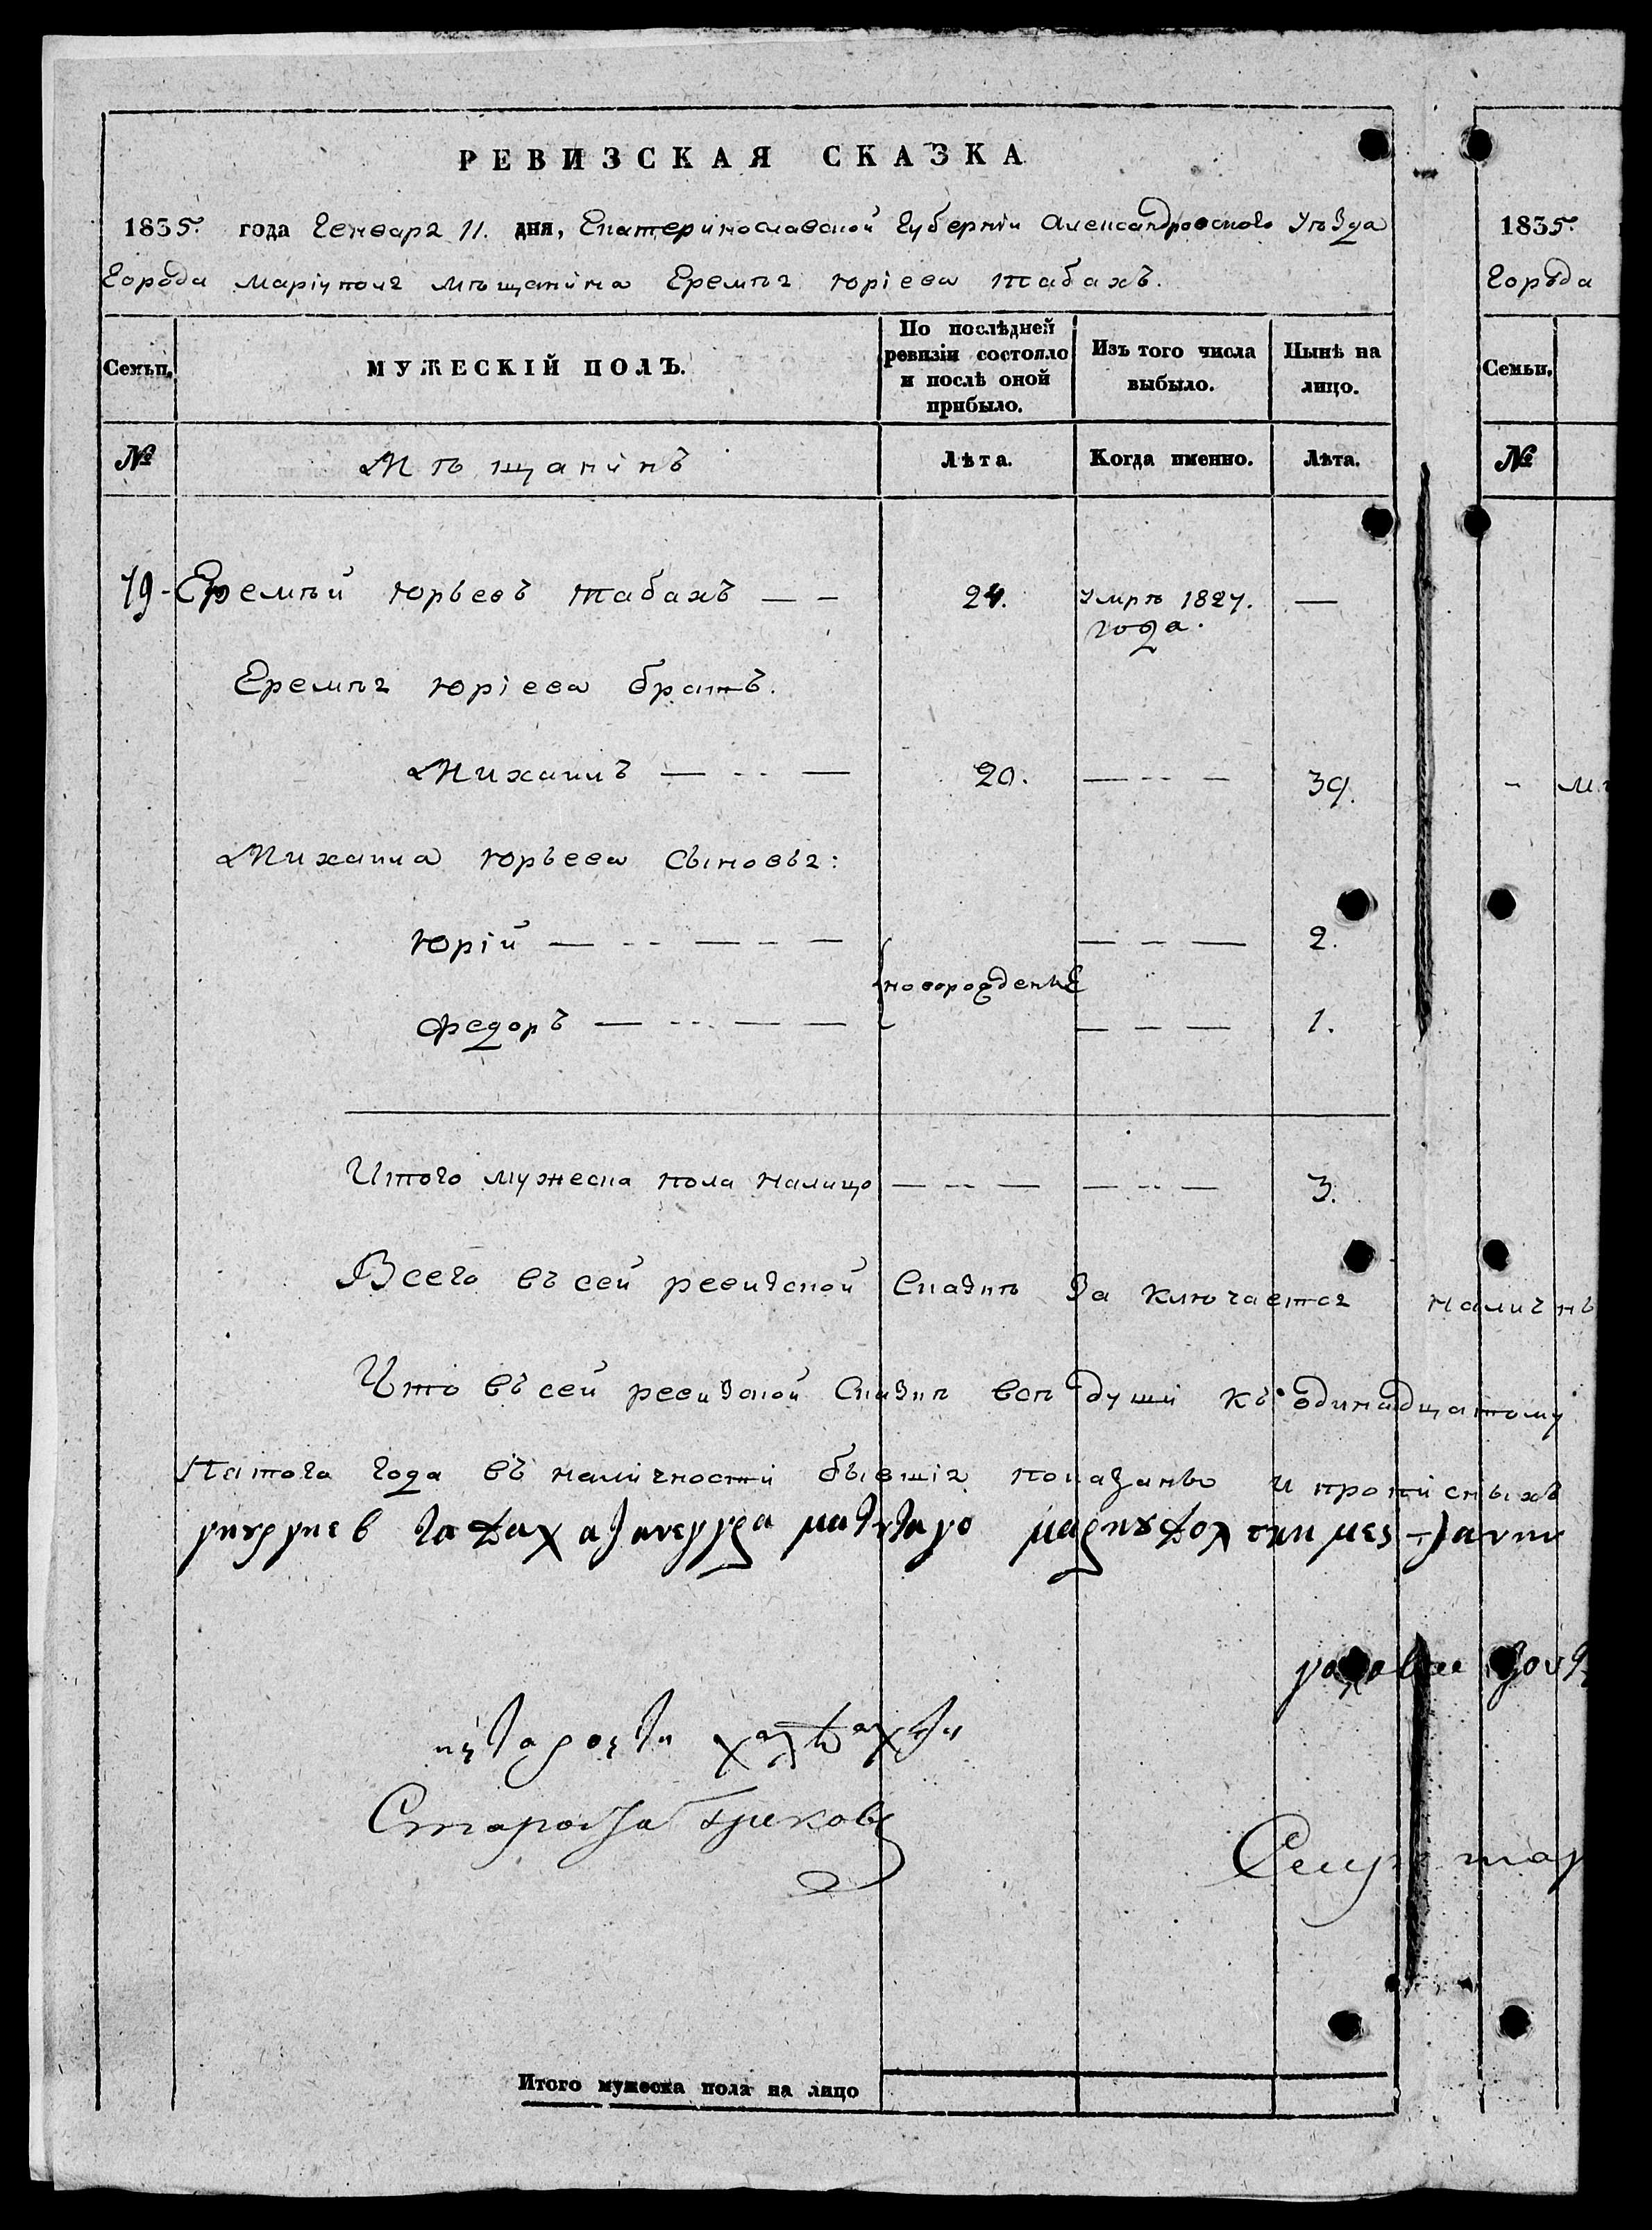 РЕВИЗСКАЯ СКАЗКА
1835. года Генваря 11. дня, Екатеринославской Губерніи Александровского Уѣзда
Города Маріуполя мѣщанина Еремѣя Юріева Табахъ.
Семьи.
МУЖЕСКІЙ ПОЛЪ.
По послѣдней ревизіи состояло и послѣ оной прибыло.
Изъ того числа выбыло.
Нынѣ на лицо.
№
Мѣщанинъ
Лѣта.
Когда именно.
Лѣта.
19 - Еремѣй Юрьевъ Табахъ — – 24. Умрѣ 1827. года. —
Еремѣя Юріева братъ.
Михаилъ — - - — 20. — - - – 39.
Михаила Юрьева Сыновья:
Юрій — - - — - — — - — 2.
новорожденые
Федоръ — - - — — — - — 1.
Итого мужеска пола налицо — - - — — - - — 3.
Всего въ сей ревизской Сказкѣ Заключается наличнъ
Что въ сей ревизской Сказкѣ всѣ души къ одинадцатому
Пятога года въ наличности бывшія показаны и прописныхъ
Староста
Итого мужеска пола на лицо
1835.
Города
Семьи.
№